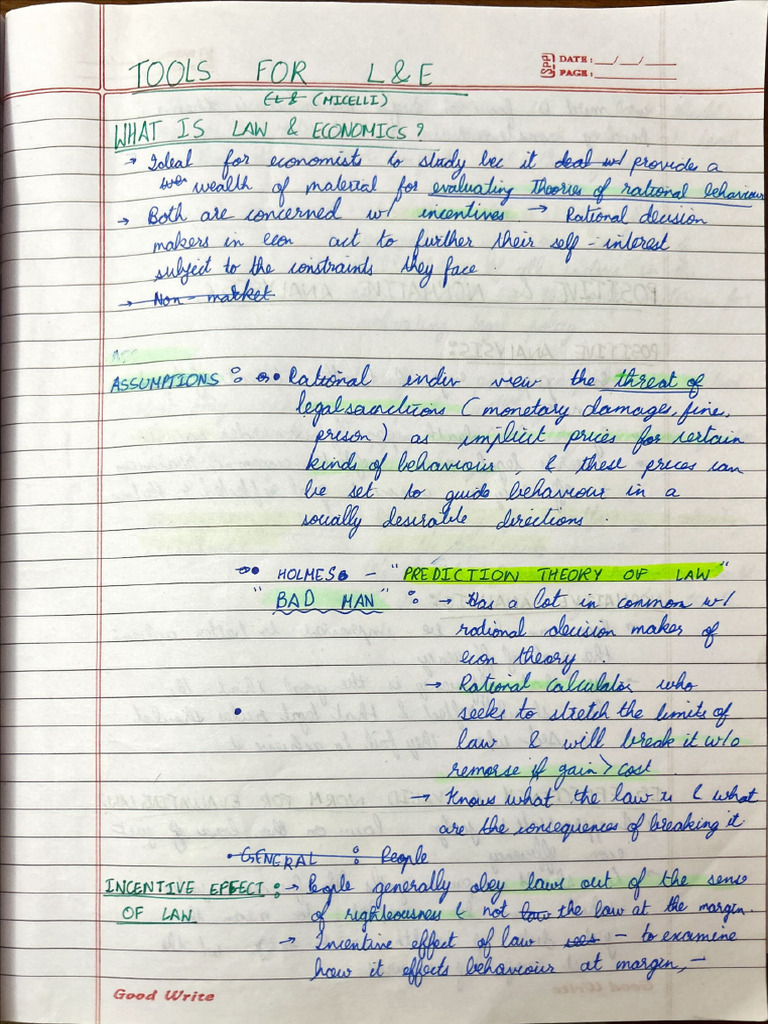 TOOLS FOR L&E
Spp DATE: __/__/__
PAGE: ______
(L & (MICELLI)
WHAT IS LAW & ECONOMICS?
→ Ideal for economists to study bec it deal w/ provides a
wealth of material for evaluating theories of rational behaviour
→ Both are concerned w/ incentives → Rational decision
makers in econ act to further their self-interest
subject to the constraints they face.
→ Non-market
ASSUMPTIONS : • Rational indiv view the threat of
legal sanctions (monetary damages, fine,
prison) as implicit prices for certain
kinds of behaviour, & these prices can
be set to guide behaviour in a
socially desirable directions.
• HOLMES - "PREDICTION THEORY OF LAW"
"BAD MAN" : → Has a lot in common w/
rational decision maker of
econ theory.
→ Rational calculator who
• seeks to stretch the limits of
law & will break it w/o
remorse if gain > cost
→ Knows what the law is & what
are the consequences of breaking it
• GENERAL : People
INCENTIVE EFFECT : → People generally obey laws out of the sense
OF LAW of righteousness & not law the law at the margin.
→ Incentive effect of law sees - to examine
how it effects behaviour at margin, -
Good Write